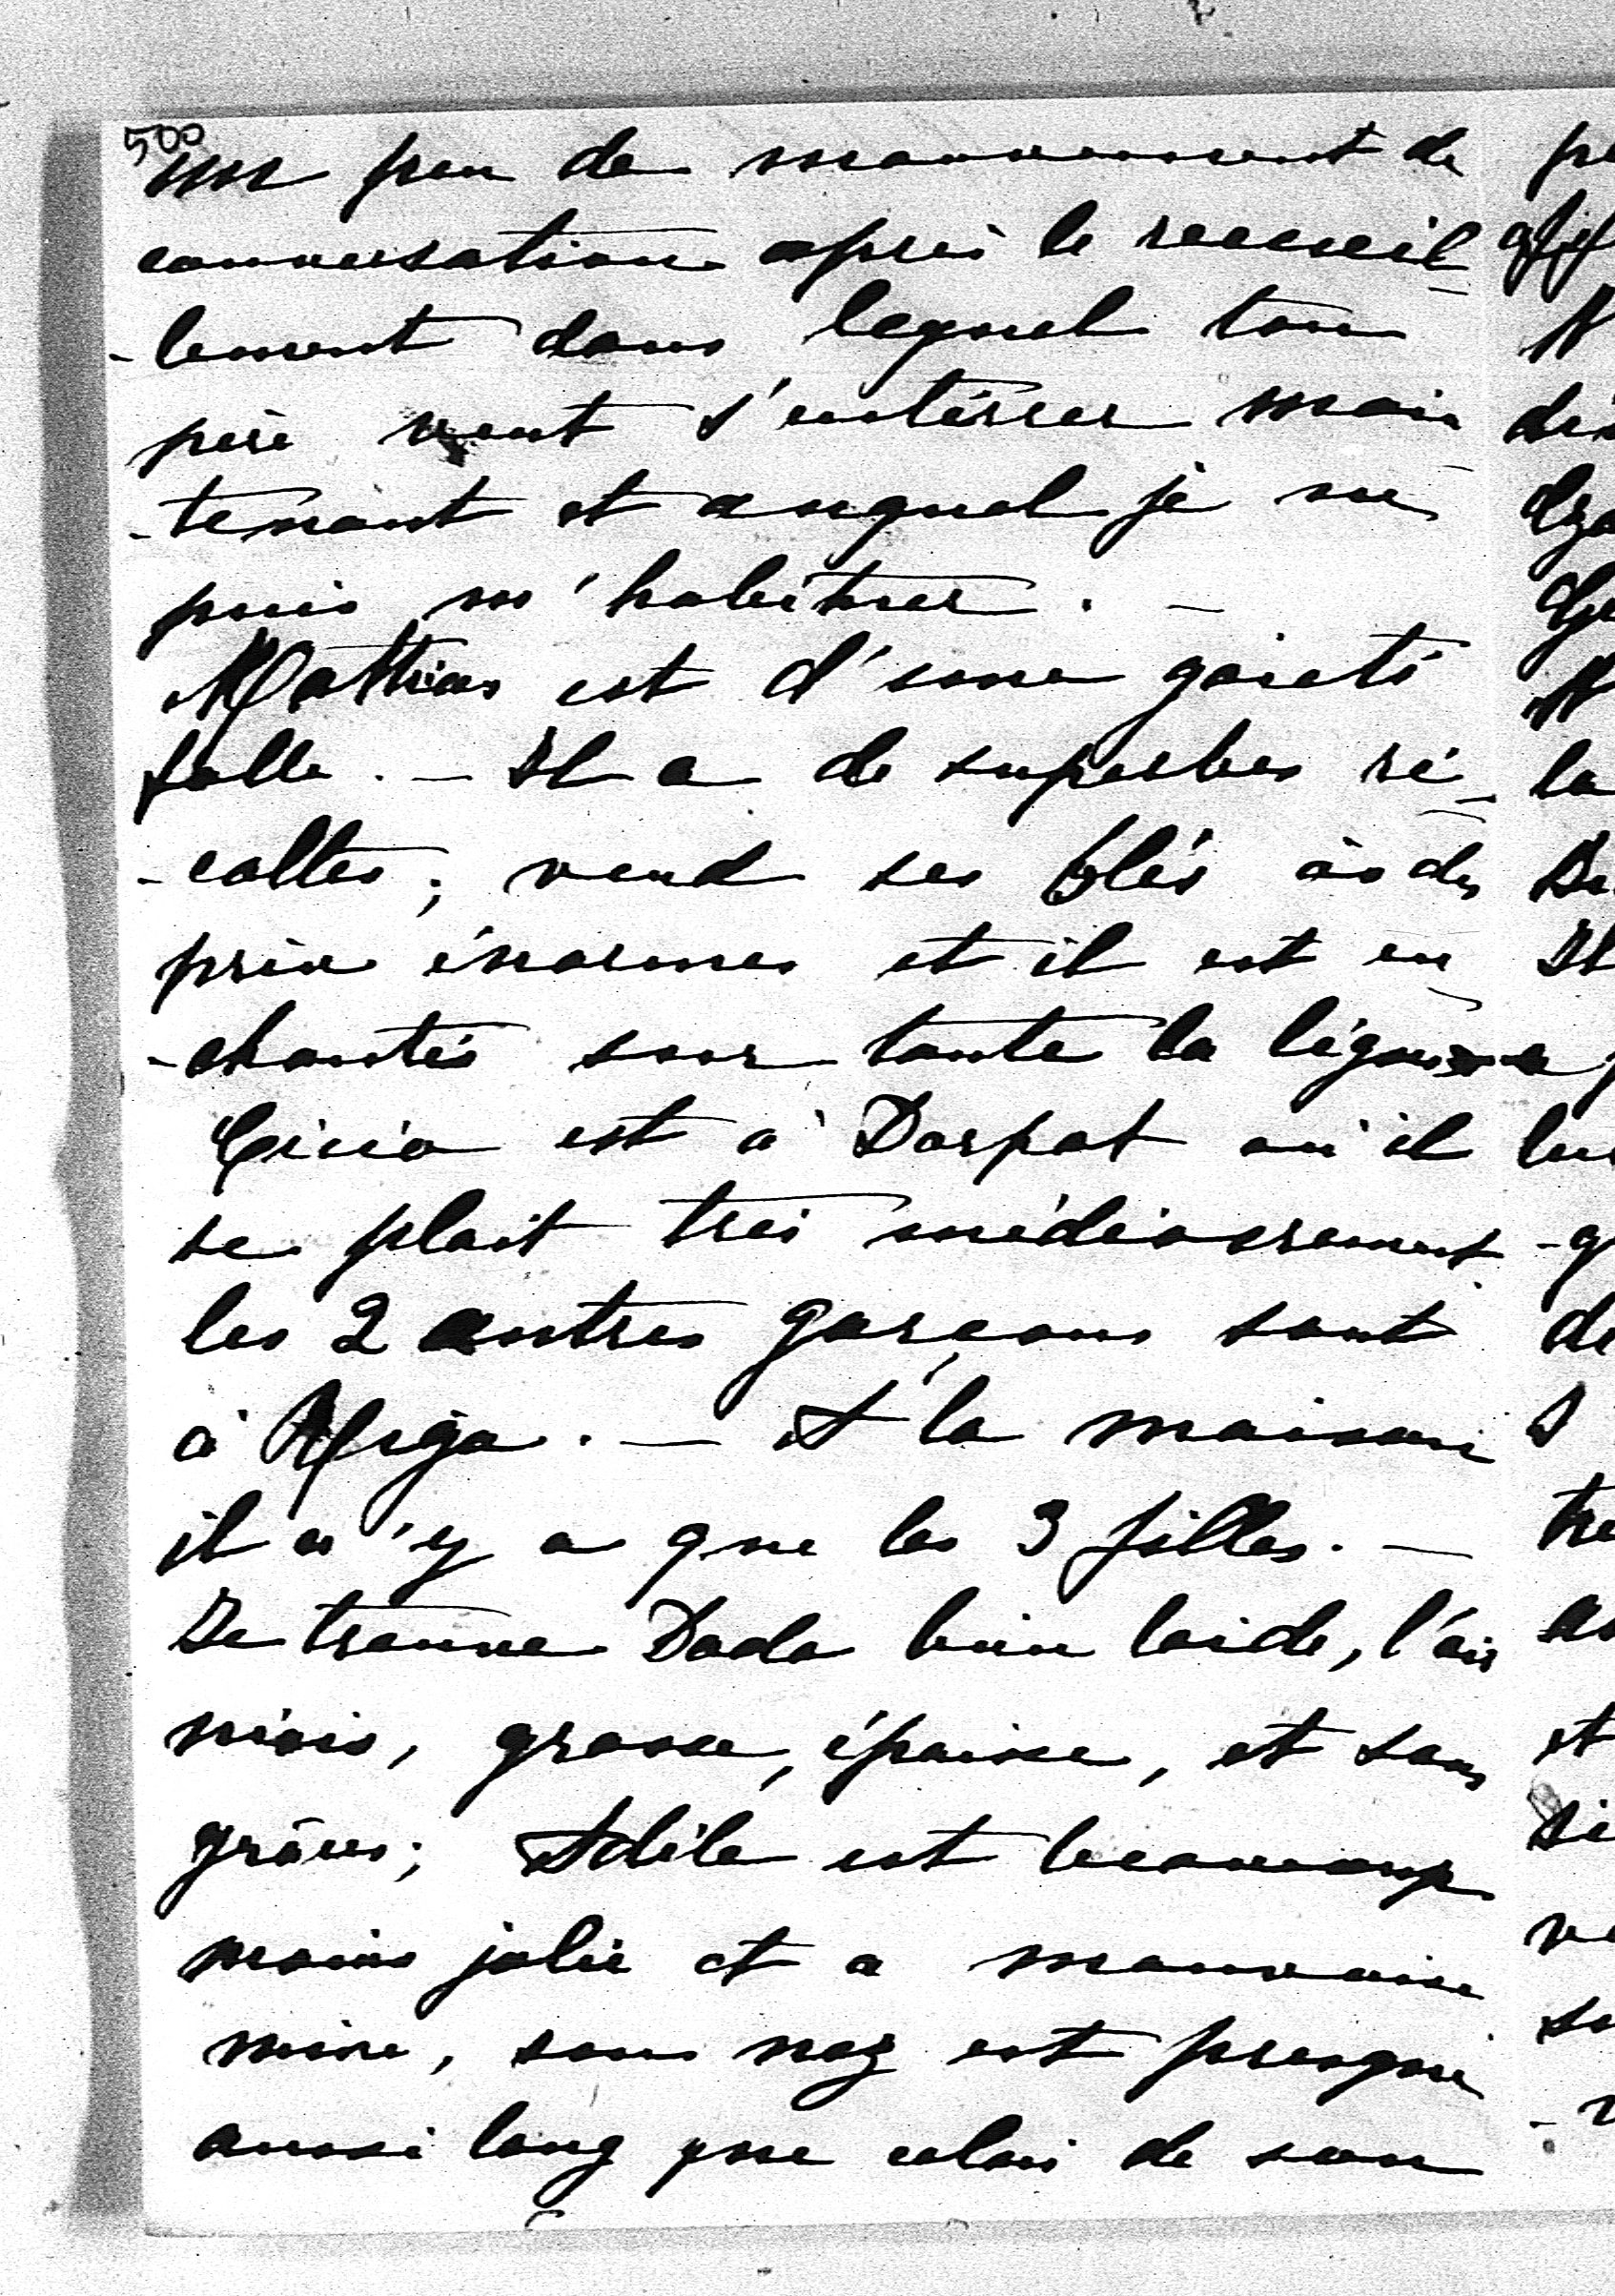 500
un peu de mouvement de
conversation après le recueil
-lement dans lequel ton
père veut s'entérrer main
-tenant et auquel je ne
puis m'habituer. –
Mattias est d'une gaieté
folle. – Il a de superbes ré-
-coltes; vend ses blés à des
prix énormes et il est en
-chanté sur toute la
est à Dorpat où il
se plait très médiocrement
les 2 autres garçons sont
à Riga. – A la maison
il n'y a que les 3 filles. –
Je trouve Dada bien laide, l'air
niais, grosse, épaisse, et sans
grâces; Adèle est beaucoup
moins jolie et a mauvaise
mine, son nez est presque
aussi long que celui de son